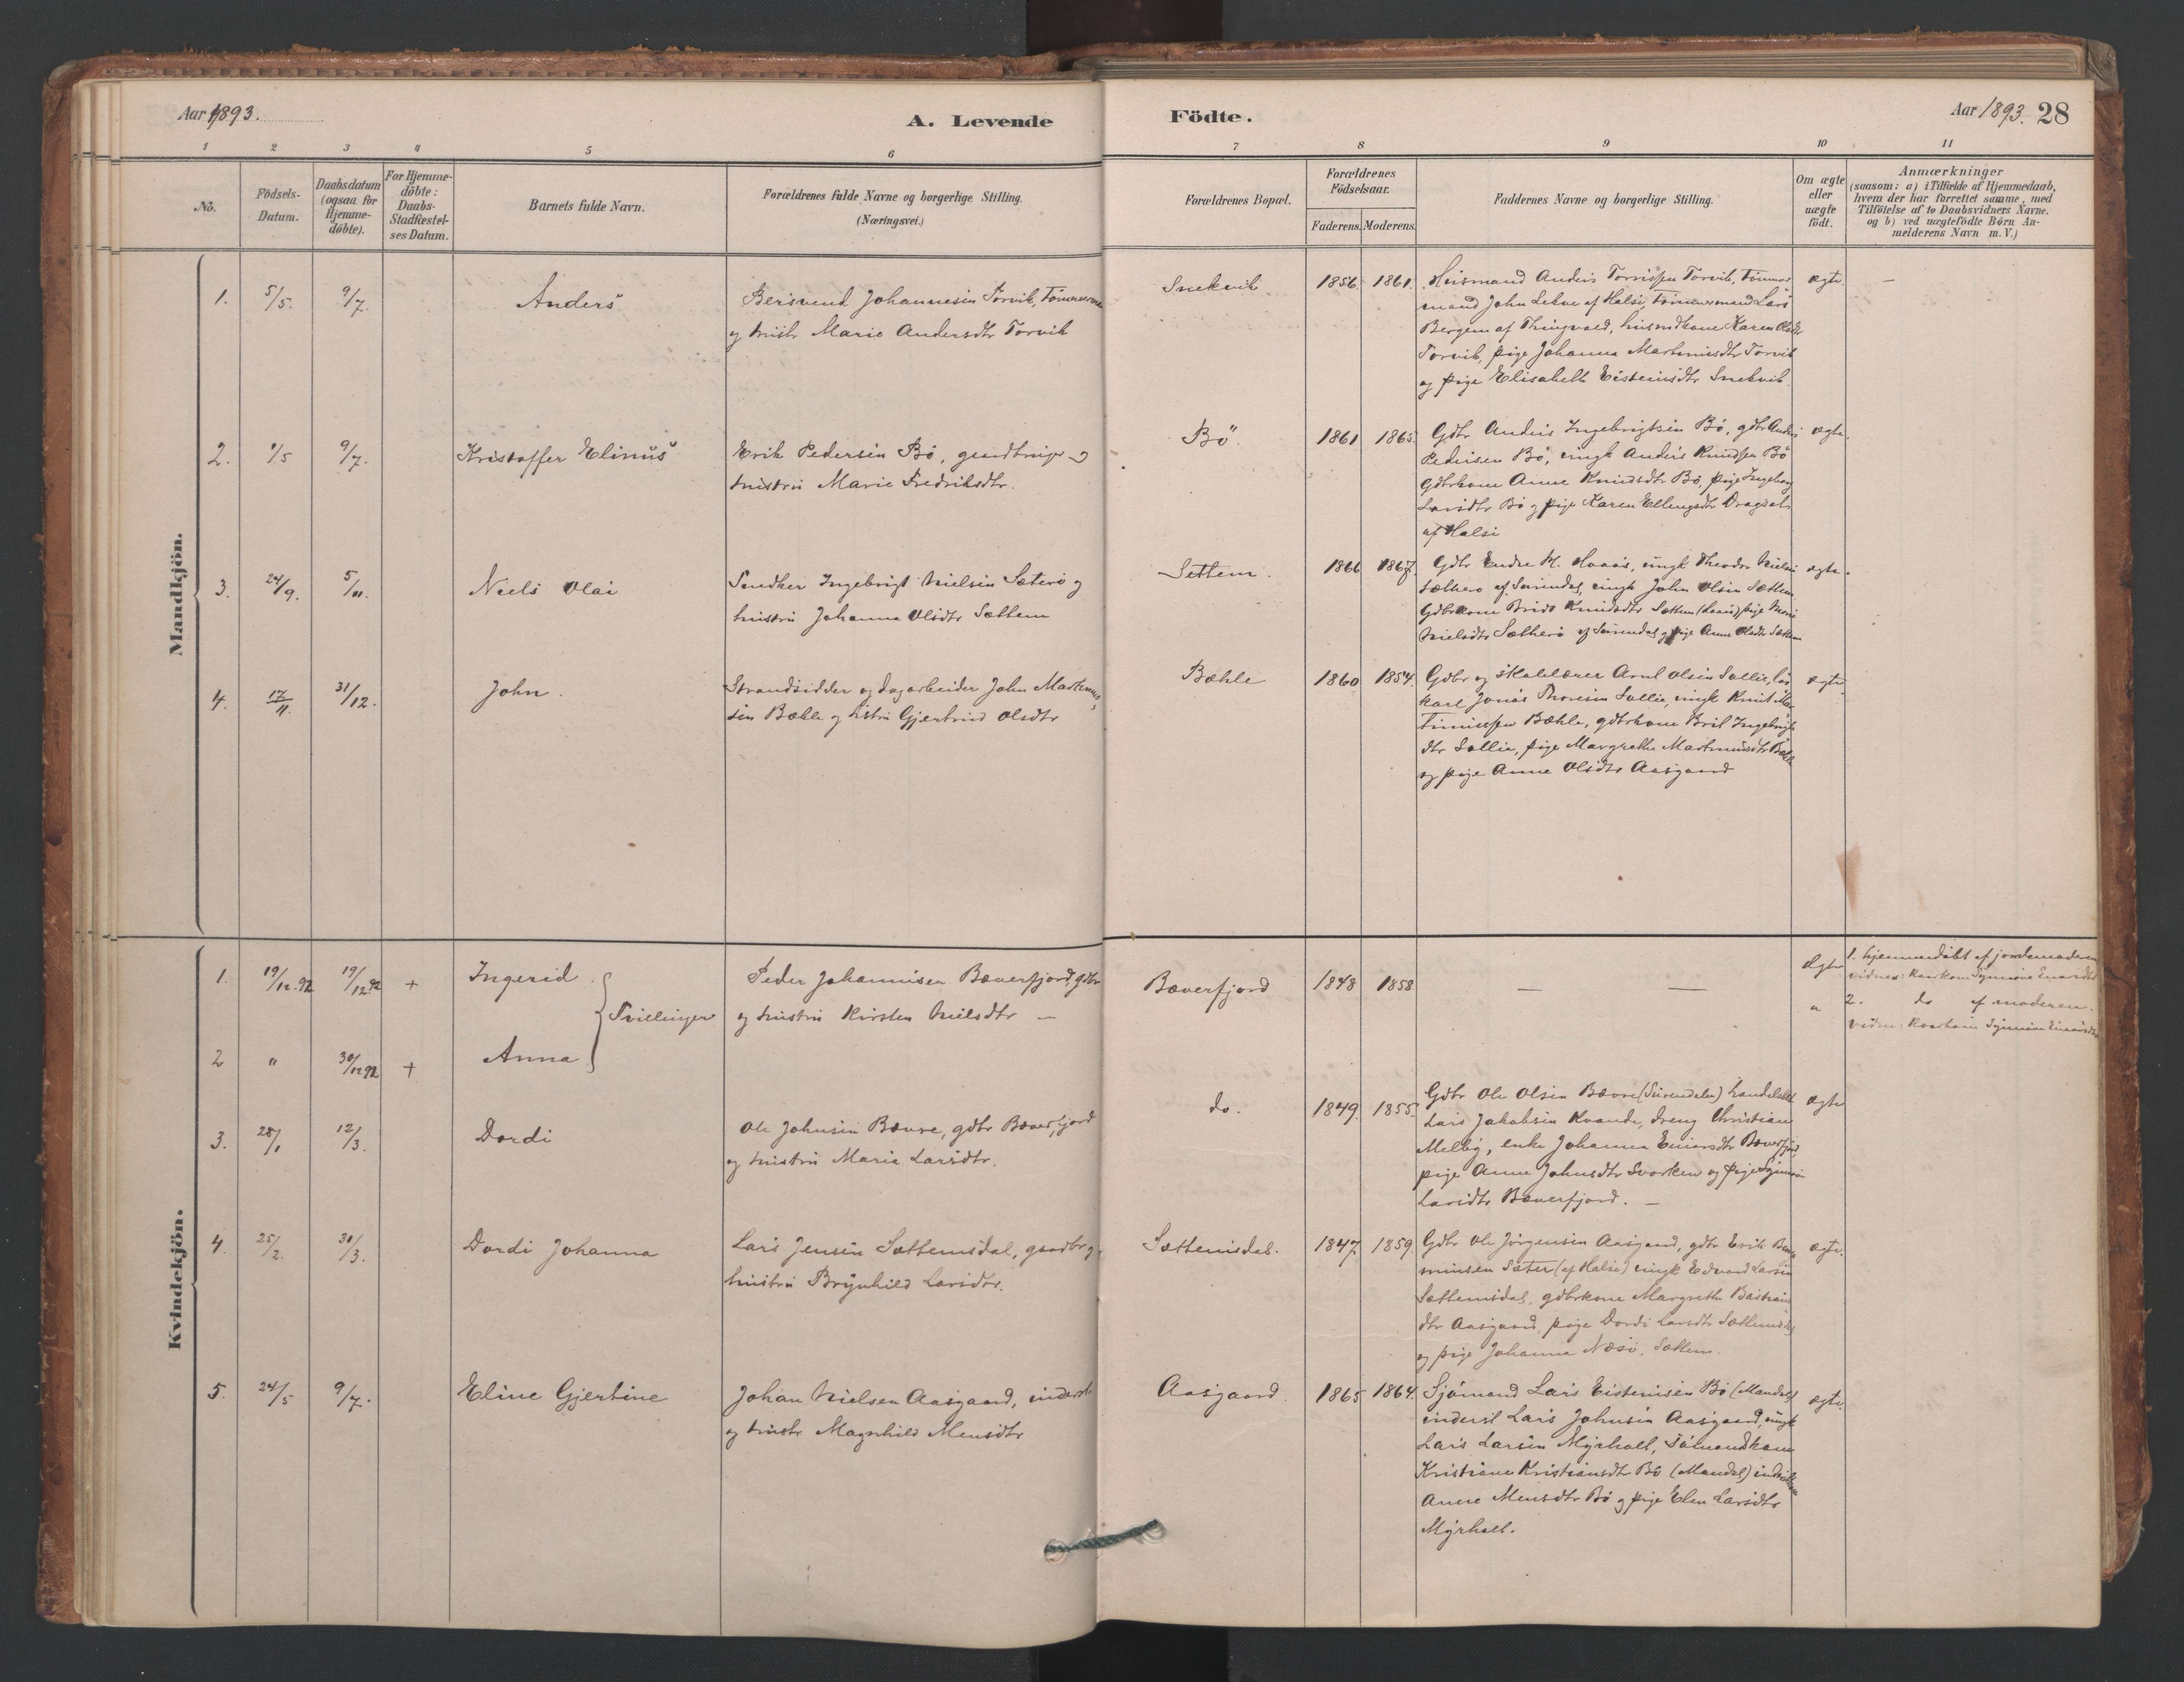 Aar 1893.
A. Levende
Födte.
Aar 1893. 28
1 2 3 4 5 6 7 8 9 10 11
No.
Födsels-
Datum.
Daabsdatum
(ogsaa for
Hjemme-
döbte).
For Hjemme-
döbte:
Daabs-
Stadfæstel-
ses Datum.
Barnets fulde Navn.
Forældrenes fulde Navne og borgerlige Stilling.
(Næringsvei.)
Forældrenes Bopæl.
Forældrenes
Födselsaar.
Faderens. Moderens.
Faddernes Navne og borgerlige Stilling.
Om ægte
eller
uægte
födt.
Anmærkninger
(saasom: a) i Tilfælde af Hjemmedaab,
hvem der har forrettet samme, med
Tilföielse af to Daabsvidners Navne.
og b) ved uægtefödte Börn An-
melderens Navn m. V.)
Mandkjön.
1. 5/5. 9/7. Anders
Bersvend Johannesen Torvik,
og hustr Marie Andersdtr Torvik
Snekvik 1856 1861.
Husmand Anders Torrissen Torvik, Tömmer
mand John Lehne af Halse, Tömmermand Lars
Bergem af Thingvold, husmdkone Karen Olsdtr
Torvik, pige Johanna Martinusdtr Torvik
og pige Elisabeth Eistensdtr Snekvik.
ægte —
2. /5 9/7. Kristoffer Elinus
Erik Pedersen Bö, og
hustru Marie Fredriksdtr.
Bö. 1861 1865.
Gdbr Anders Ingebrigtsen Bö, gdbr Anders
Pedersen Bö, ungk Anders Knudsen Bö
Gdbrkone Anne Knudsdtr Bö, pige Ingeborg
Larsdtr Bö og pige Karen Ellingsdtr Dragset
af Halse
ægte.
3. 24/9. 5/11. Niels Olai
Snedker Ingebrigt Nielsen Sæterö og
hustru Johanna Olsdtr Settem
Settem. 1866 1867.
Gdbr Endre K. Honaas, ungk Theodor Nielsen
Sætherö af Surendal, ungk John Olsen Settem
Gdbrkone Brit Knudsdtr Settem pige
Nielsdtr Sætherö af Surendal og pige Anne Olsdtr Settem
ægte.
4. 17/11. 31/12. John.
Strandsidder og dagarbeider John Martinus
sen Bæhle og hstru Gjertrud Olsdtr
Bæhle 1860 1854.
Gdbr og skolelærer Arnt Olsen Sollie,
karl Jonas Thoresen Sollie, ungk Knut Mar
tinussen Bæhle, gdbrkone Brit Ingebrigts
dtr Sollie, pige Margrethe Martinusdtr Bæhle
og pige Anne Olsdtr Aasgaard
ægte
Kvindekjön.
1. 19/12.92 19/12.92 + Ingerid
Tvillinger
Peder Johannesen Bæverfjord, gdbr
og hustru Kirsten Nielsdtr —
Bæverfjord 1848 1858 — —
ægte
1. hjemmedöbt af jordemoderen
2. do af moderen.
2 " 30/12 92 + Anna
3. 28/1 12/3. Dordi
Ole Johnsen Bævre, gdbr Bæverfjord
og hustru Marie Larsdtr.
do. 1849. 1855.
Gdbr Ole Olsen Bævre (Surendalen)
Lars Jakobsen Kvande, dreng Christian
Melby, enke Johanna Einarsdtr Bæverfjord
pige Anne Johnsdtr Svorken og pige
Larsdtr Bæverfjord. —
ægte
4. 25/2. 30/3. Dordi Johanna
Lars Jensen Settemsdal, gaardbr og
hustru Brynhild Larsdtr.
Settemsdal. 1847. 1859.
Gdbr Ole Jörgensen Aasgaard, gdbr Erik
Sæter (af Halse) ungk Edvard Larsen
Settemsdal, gdbrkone Margrethe Bastians
dtr Aasgaard, pige Dordi Larsdtr Settemsdal
og pige Johanna Næsö, Settem.
ægte.
5. 24/5 9/7. Eline Gjertine
Johan Nielsen Aasgaard, inderst
og hustr Magnhild Monsdtr
Aasgaard 1865 1864.
Sjömand Lars Eistensen Bö (Mandal)
inderst Lars Johnsen Aasgaard, ungk
Lars Larsen Myrholt, Sömandskone
Kristiane Kristiansdtr Bö (Mandal)
Anne Monsdtr Bö og pige Elen Larsdtr
Myrholt.
ægte.